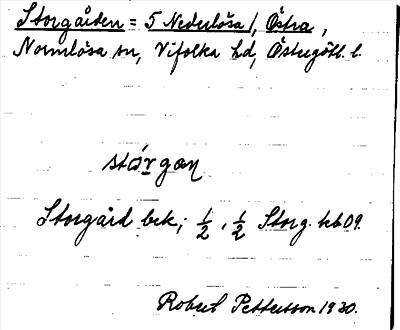 Storgården = 5 Nederlösa, Östra,
Normlösa sn, Vifolka hd, Östergötl. l.
stǿrgan
Storgård bek; 1/2, 1/2 Storg. kb 09.
Robert Pettersson 1930.